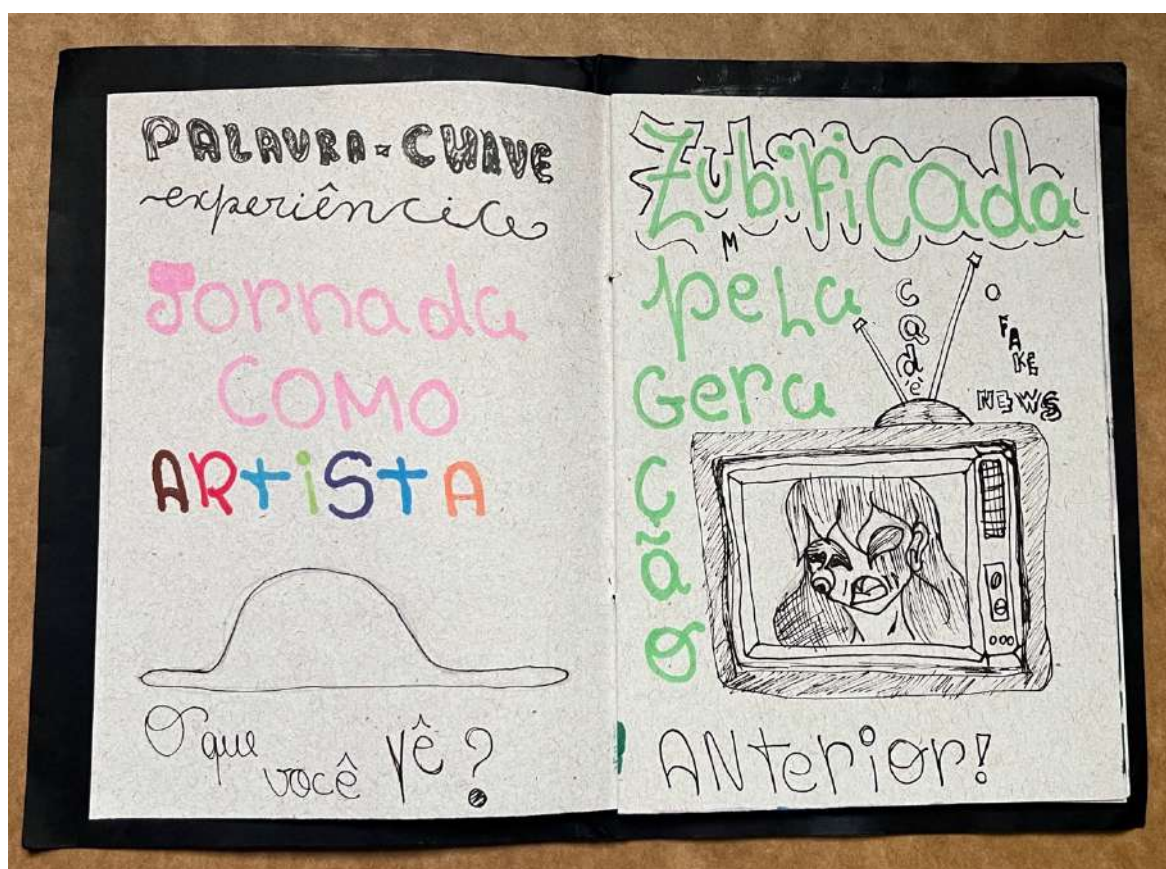 PALAVRA-CHAVE
experiência
Jornada
COMO
ARTiSTA
O que você vê?
Zubificada
M
peLa
Gera
ç
ã
o
cadê
O
FAKE
NEWS
ANterior!